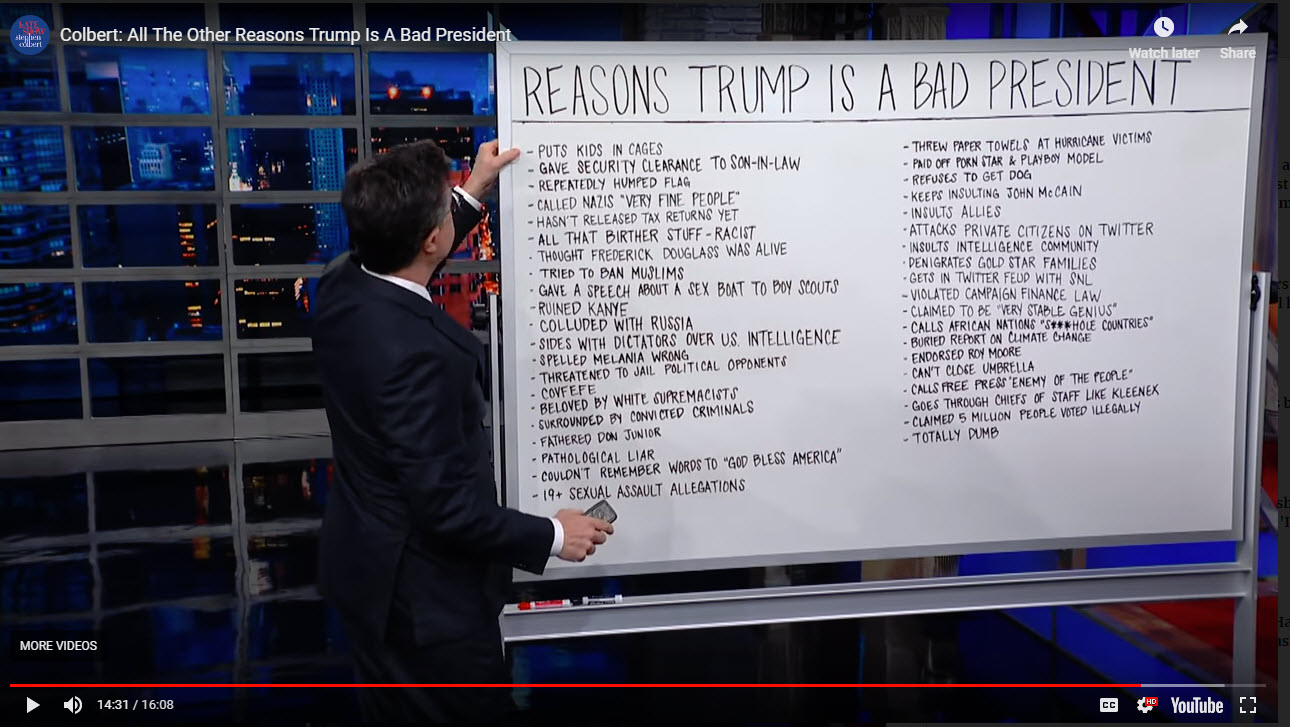 LATE SHOW
stephen
colbert
Colbert: All The Other Reasons Trump Is A Bad President
Watch later
Share
REASONS TRUMP IS A BAD PRESIDENT
- PUTS KIDS IN CAGES
- GAVE SECURITY CLEARANCE TO SON-IN-LAW
- REPEATEDLY HUMPED FLAG
- CALLED NAZIS "VERY FINE PEOPLE"
- HASN'T RELEASED TAX RETURNS YET
- ALL THAT BIRTHER STUFF - RACIST
- THOUGHT FREDERICK DOUGLASS WAS ALIVE
- TRIED TO BAN MUSLIMS
- GAVE A SPEECH ABOUT A SEX BOAT TO BOY SCOUTS
- RUINED KANYE
- COLLUDED WITH RUSSIA
- SIDES WITH DICTATORS OVER U.S. INTELLIGENCE
- SPELLED MELANIA WRONG
- THREATENED TO JAIL POLITICAL OPPONENTS
- COVFEFE
- BELOVED BY WHITE SUPREMACISTS
- SURROUNDED BY CONVICTED CRIMINALS
- FATHERED DON JUNIOR
- PATHOLOGICAL LIAR
- COULDN'T REMEMBER WORDS TO "GOD BLESS AMERICA"
- 19+ SEXUAL ASSAULT ALLEGATIONS
- THREW PAPER TOWELS AT HURRICANE VICTIMS
- PAID OFF PORN STAR & PLAYBOY MODEL
- REFUSES TO GET DOG
- KEEPS INSULTING JOHN McCAIN
- INSULTS ALLIES
- ATTACKS PRIVATE CITIZENS ON TWITTER
- INSULTS INTELLIGENCE COMMUNITY
- DENIGRATES GOLD STAR FAMILIES
- GETS IN TWITTER FEUD WITH SNL
- VIOLATED CAMPAIGN FINANCE LAW
- CLAIMED TO BE "VERY STABLE GENIUS"
- CALLS AFRICAN NATIONS "S***HOLE COUNTRIES"
- BURIED REPORT ON CLIMATE CHANGE
- ENDORSED ROY MOORE
- CAN'T CLOSE UMBRELLA
- CALLS FREE PRESS "ENEMY OF THE PEOPLE"
- GOES THROUGH CHIEFS OF STAFF LIKE KLEENEX
- CLAIMED 5 MILLION PEOPLE VOTED ILLEGALLY
- TOTALLY DUMB
MORE VIDEOS
14:31 / 16:08
CC
HD
YouTube